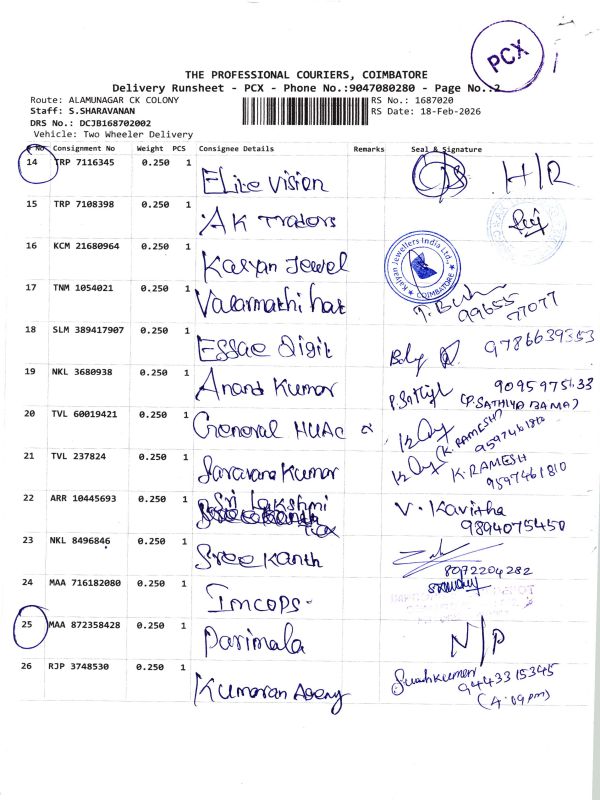 PCX
THE PROFESSIONAL COURIERS, COIMBATORE
Delivery Runsheet - PCX - Phone No.:9047080280 - Page No.:2
Route: ALAMUNAGAR CK COLONY
RS No.: 1687020
Staff: S.SHARAVANAN
RS Date: 18-Feb-2026
DRS No.: DCJB168702002
Vehicle: Two Wheeler Delivery
# No Consignment No Weight PCS Consignee Details Remarks Seal & Signature
14 TRP 7116345 0.250 1 Elite Vision H/R
15 TRP 7108398 0.250 1 AK Traders
16 KCM 21680964 0.250 1 Kalyan Jewel
Kalyan Jewellers India Ltd., COIMBATORE
17 TNM 1054021 0.250 1 Valarmathi
99655
77077
18 SLM 389417907 0.250 1 Essae Digit 9786639353
19 NKL 3680938 0.250 1 Anand Kumar 9095975633
(P.SATHIYA BAMA)
20 TVL 60019421 0.250 1 General HVAC
(K.RAMESH)
9597461810
21 TVL 237824 0.250 1 Saravana Kumar K.RAMESH
9597461810
22 ARR 10445693 0.250 1 Sri Lakshmi
Tex
V. Kavitha
9894075450
23 NKL 8496846 0.250 1 Sree Kanth
8072204282
24 MAA 716182080 0.250 1 Imcops
25 MAA 872358428 0.250 1 Parimala N/P
26 RJP 3748530 0.250 1 Kumaran Ageny
9443315345
(4.09pm)